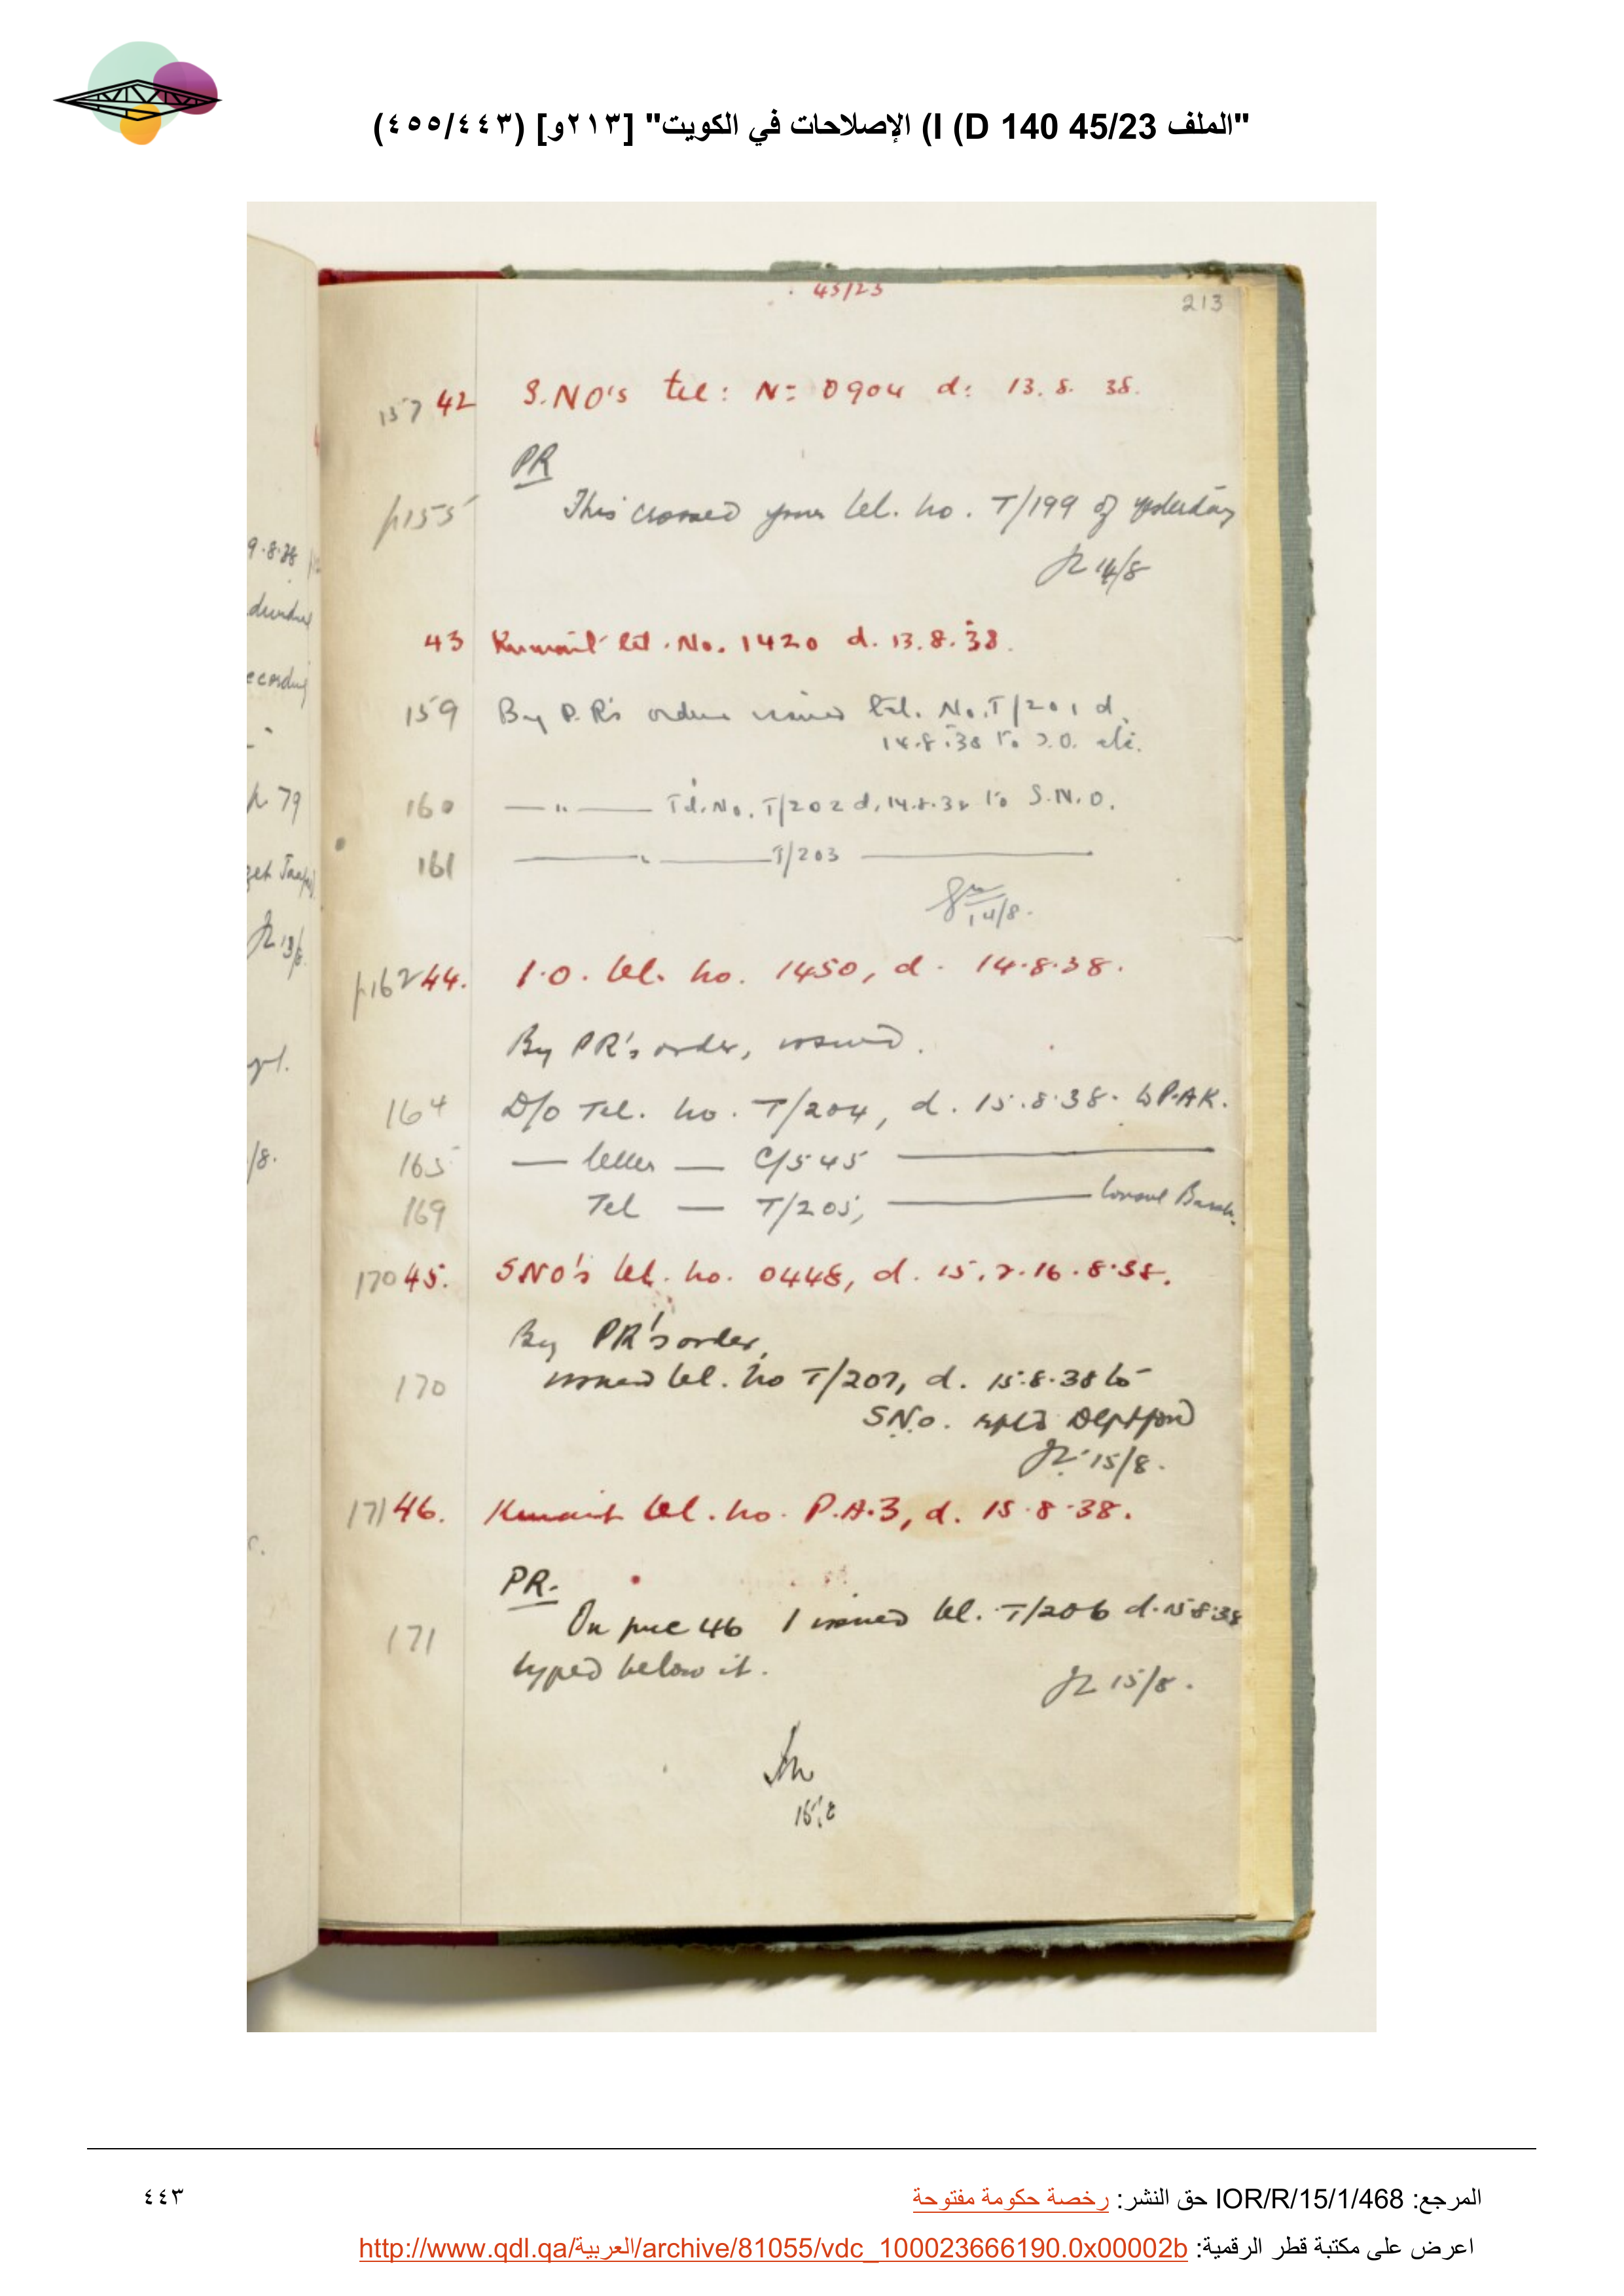 "الملف 45/23 I (D 140) الإصلاحات في الكويت" [٢١٣و] (٤٥٥/٤٤٣)
45/23
213
157 42 S.NO's tel: No 0904 d: 13.8.38.
PR
p155 This crossed your tel. no. T/199 of yesterday
14/8
43 Kuwait tel. No. 1420 d. 13.8.38.
159 By P.R's orders issued tel. No. T/201 d.
14.8.38 to I.O. etc.
160 — " — Tel. No. T/202 d. 14.8.38 to S.N.O.
161 — " — T/203 —
14/8.
p162 44. I.O. tel. no. 1450, d. 14.8.38.
By PR's order, issued.
164 D/O Tel. no. T/204, d. 15.8.38. to P.A.K.
165 — letter — C/545 —
169 Tel — T/205, — Consul Basrah.
170 45. SNO's tel. no. 0448, d. 15.8.38.
By PR's order,
170 issued tel. no T/207, d. 15.8.38 to
S.N.O. rptd Deptford
15/8.
171 46. Kuwait tel. no. P.A.3, d. 15.8.38.
PR.
171 On puc 46 I issued tel. T/206 d. 15.8.38
typed below it.
15/8.
15.8
9.8.38
p 79
13/8.
/8.
المرجع: IOR/R/15/1/468 حق النشر: رخصة حكومة مفتوحة
٤٤٣
اعرض على مكتبة قطر الرقمية: http://www.qdl.qa/العربية/archive/81055/vdc_100023666190.0x00002b